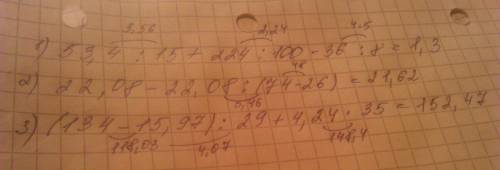 3,56 2,24 4.5
1) 53,4 : 15 + 224 : 100 - 36 : 8 = 1,3
48
2) 22,08 - 22,08 : (74-26) = 21,62
0,46
3) (134 - 15,97) : 29 + 4,24 · 35 = 152,47
118,03 4,07 148,4